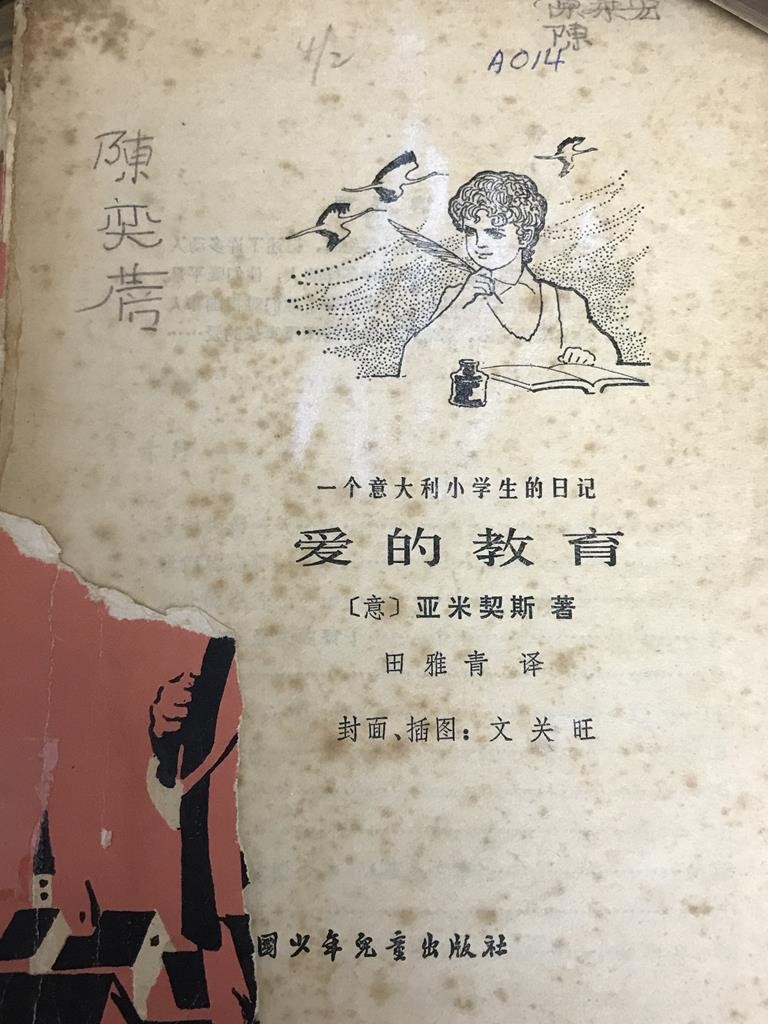 陳
4/2
A014
陳
奕
一个意大利小学生的日记
爱的教育
〔意〕亚米契斯 著
田雅青 译
封面、插图：文关旺
国少年兒童出版社